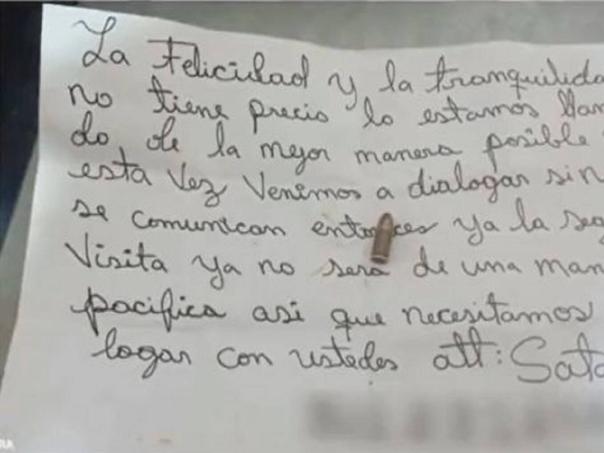 La Felicidad y la tranquilida
no tiene precio lo estamos llam
do, de la mejor manera posible
esta vez venimos a dialogar sin
se comunican entonces ya la seg
Visita ya no será de una man
pacifica asi que necesitamos
logar con ustedes att: Sata